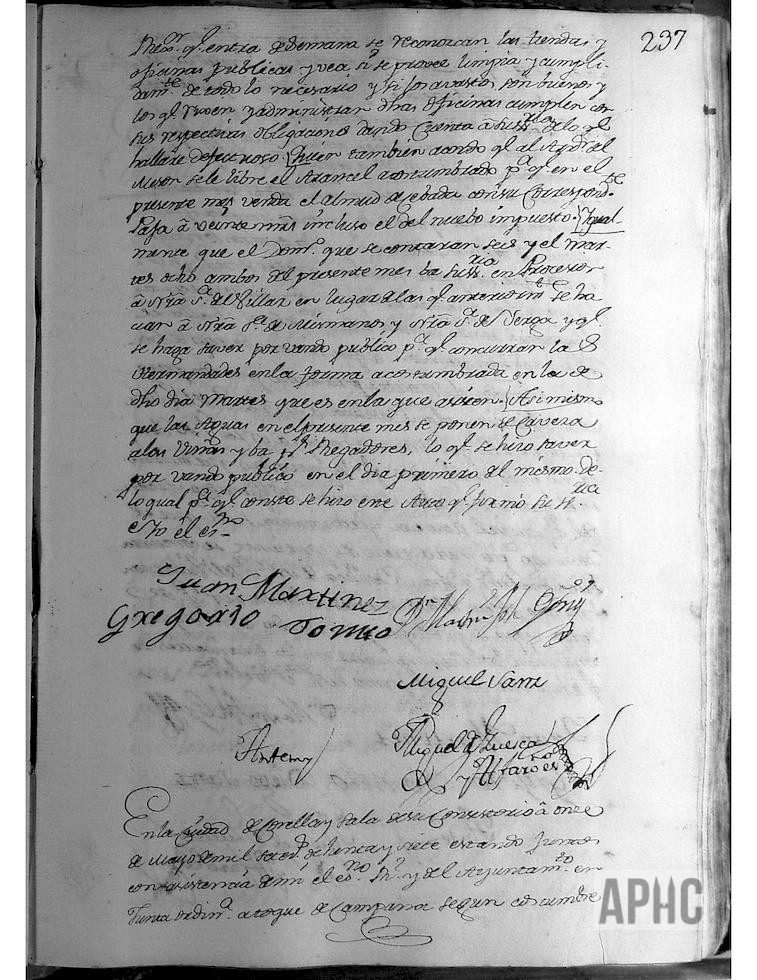 237
Rexor. q.e entra de Semana se reconozcan las tiendas y
oficinas publicas y vea si se provee limpia y cumpli-
dam.te de todo lo necesario y si los avastos son buenos y
los q.e viven y administran dhas oficinas cumplen con
sus respectivas obligaciones dando Cuenta a su Sria de lo q.e
hallare defectuoso. Quien tambien acordo q.e al Arrd.r del
Meson se le libre el Arancel acostumbrado p.a q.e en el
presente mes venda el almud de cebada con su Correspond.te
Paja a veinte mrs incluso el del nuebo impuesto. Igual-
mente que el Dom.o que se contaran seis y el mar-
tes ocho ambos del presente mes ba su Sria en Procesion
a Ntra S.a del Villar en lugar de las q.e anteriorm.te se ha
cian a Ntra S.a de Mismanos y Ntra S.a de Yerga y q.e
se haga saver por vando publico p.a q.e concurran las
Hermandades en la forma acostumbrada en la de
dho dia Martes que es en la que asisten. Asimismo
que las Aguas en el presente mes se ponen de Cavera
a las Viñas y ba p.r Regadores, lo q.e se hizo saver
por vando publico en el dia primero del mismo. de
lo qual p.a q.e conste se hizo este Auto q.e firmó su Sria
e Yo el es.no
Juan Martinez
Gregorio Tomas
Miguel Sanz
Antemy Miguel de Luesca
y Alfaro es.no
En la Ciudad de Corella y Sala de su Consistorio a onze
de Mayo de mil setez.s ochenta y siete estando Juntos
con asistencia de mi el es.no R.l y del Ayuntam.to en
Junta ordin.a a toque de Campana segun costumbre
APHC